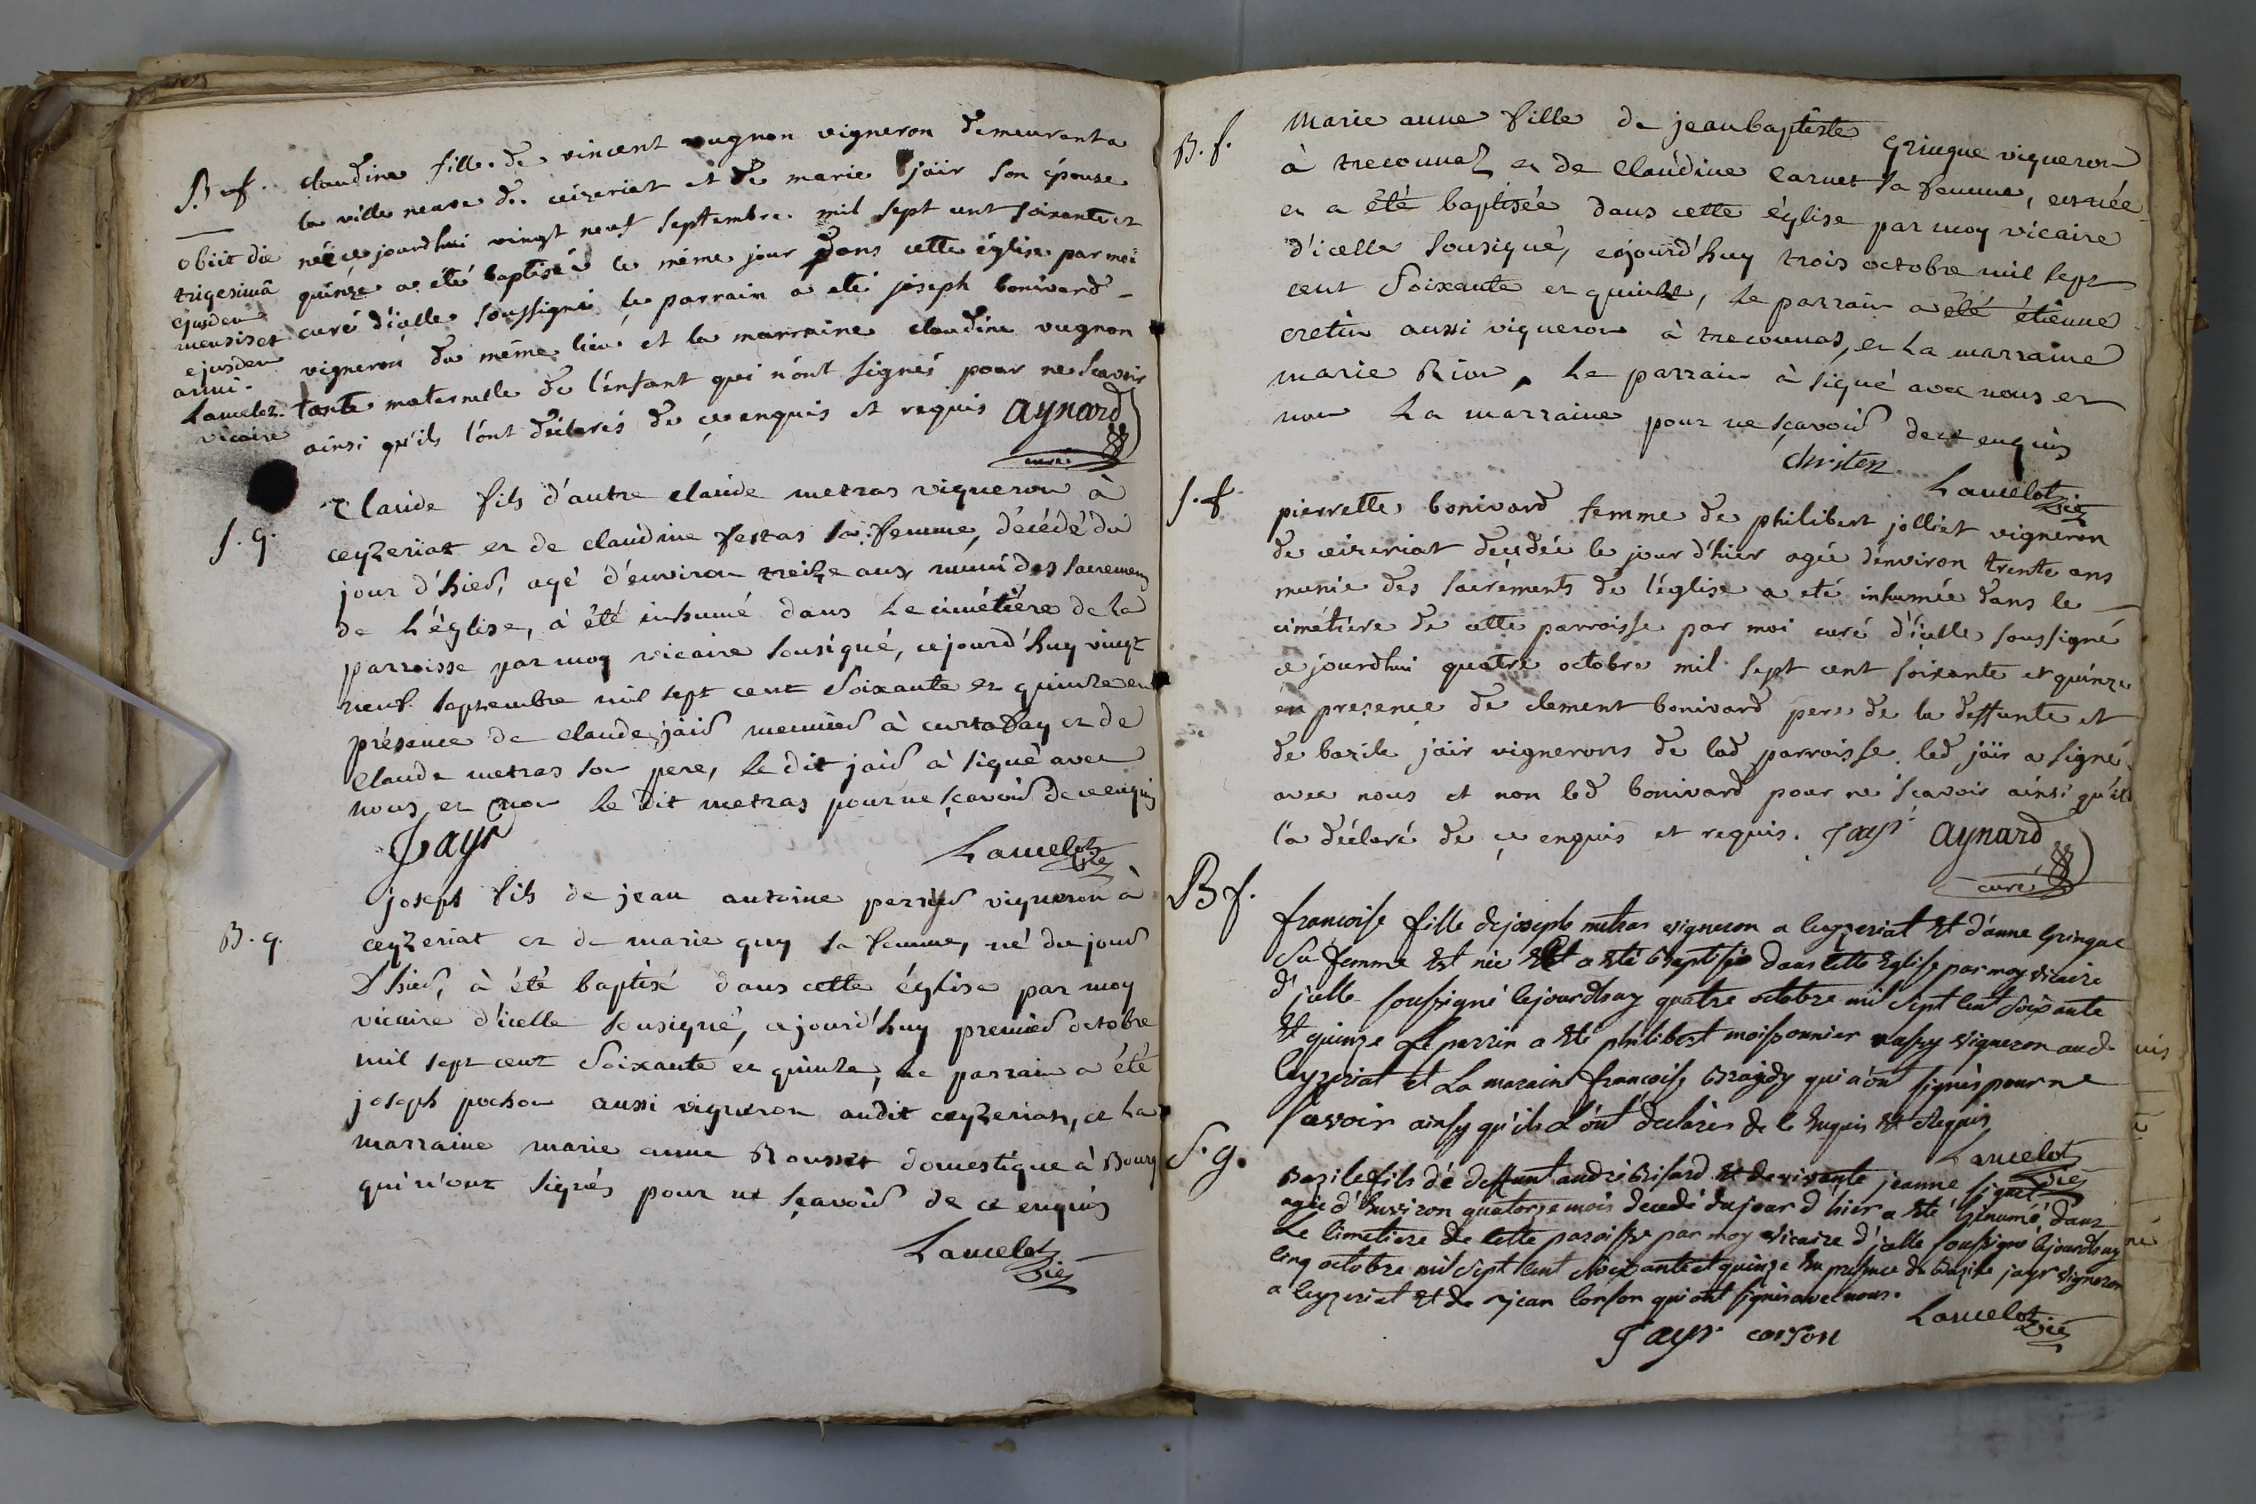 B. f.
claudine fille de vincent vugnon vigneron demeurent a
la ville neuve de ceizeriat et de marie jäir son épouse
née ce jourdhui vingt neuf septembre mil sept cent soixante et
quinze a été baptisée le même jour dans cette église par moi
curé d'icelle soussigné le parrain a eté joseph bonivard
vigneron du même lieu et la marraine claudine vugnon
tante maternelle de l'enfant qui n'ont signés pour ne scavoir
ainsi qu'ils l'ont déclarés de ce enquis et requis aynard
curé
obiit die
trigesimâ
ejusdem
mensis et
ejusdem
anni.
Lancelot
vicaire
S. g.
Claude fils d'autre claude metras vigneron à
ceyzeriat et de claudine festas sa femme, décédé du
jour d'hier, agé d'environ treize ans muni des sacremens
de L'église, à été inhumé dans Le cimétière de la
parroisse par moy vicaire sousigné, cejourd'huy vingt
neuf septembre mil sept cent Soixante et quinze en
présence de claude jair meunier à curtaday et de
Claude metras son pere, le dit jair à signé avec
nous et non le dit metras pour ne sçavoir de ce enquis
Jayr
Lancelot vic
B. g.
joseph fils de jean antoine perrier vigneron à
ceyzeriat et de marie guy sa femme, né du jour
D'hier, à été baptisé dans cette église par moy
vicaire d'icelle sousigné, cejourd'huy premier octobre
mil sept cent Soixante et quinze, le parrain a été
joseph pochon aussi vigneron audit ceyzeriat, et La
marraine marie anne Rousset domestique à Bourg
qui n'ont signés pour ne sçavoir de ce enquis
Lancelot
vic
B. f.
Marie anne fille de jean baptiste Gringue vigneron
à treconnaz et de Claudine Carnet sa femme, est née
et a été baptisée dans cette église par moy vicaire
d'icelle sousigné, cejourd'huy trois octobre mil sept
cent Soixante et quinze, le parrain a été étienne
cretin aussi vigneron à treconnas, et La marraine
marie Rion, Le parrain à signé avec nous et
non La marraine pour ne sçavoir de ce enquis
Lancelot
vic
S. f.
pierrette bonivard femme de philibert jolliet vigneron
de ceizeriat decedée le jour d'hier agée d'environ trente ans
munie des sacréments de l'église a eté inhumée dans le
cimétiere de cette parroisse par moi curé d'icelle soussigné
ce jourdhui quatre octobre mil sept cent soixante et quinze
en presence de clement bonivard pere de la deffunte et
de bazile jäir vignerons de lad parroisse. led jäir a signé
avec nous et non led bonivard pour ne scavoir ainsi qu'il
l'a déclaré de ce enquis et requis. Jayr aynard
curé
B f.
francoise fille de joseph metras vigneron a Ceyzeriat Et d'anne Gringue
Sa femme Est née Et a Eté Baptisée dans Cette Eglise par moy vicaire
d'icelle soussigné Cejourdhuy quatre octobre mil Sept Cent Soixante
Et quinze Le parrin a Eté philibert moissonnier aussy vigneron aud
Ceyzeriat et La maraine francoise qui n'ont signés pour ne
savoir ainsy qu'ils L'ont declarés de Ce Enquis Et Requis
Lancelot
vic
S. g.
Bazile fils de deffunt andré Brisard Et de vivante jeanne
agée d'Environ quatorze mois decedé du jour d'hier a Eté inhumé dans
Le Cimetiere de Cette paroisse par moy vicaire d'icelle soussigné Cejourdhuy
Cinq octobre mil Sept Cent Soixante et quinze En presence de Bazile jayr vigneron
a Ceyzeriat Et de jean Corson qui ont signés avec nous.
Lancelot vic
Jayr corson